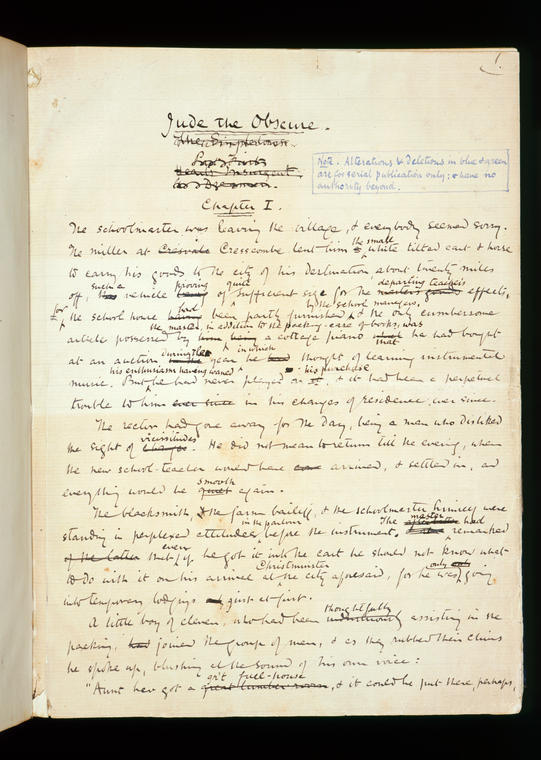 1.
Jude the Obscure.
The Simpletons
Hearts Insurgent
Note. Alterations & Deletions in blue & green
are for serial publication only; & have no
authority beyond.
Chapter I.
The schoolmaster was leaving the village, & everybody seemed sorry.
The miller at Cresscombe lent him the small white tilted cart & horse
to carry his goods to the city of his destination, about twenty miles
off, such a vehicle proving of quite sufficient size for the departing teacher's effects.
for the school house had been partly furnished by the school managers, & the only cumbersome
article possessed by the master, in addition to the packing-case of books, was a cottage piano that he had bought
at an auction during the year in which he thought of learning instrumental
music. But his enthusiasm having waned he had never played on it, & his purchase had been a perpetual
trouble to him ever since in his changes of residence ever since.
The rector had gone away for the day, being a man who disliked
the sight of vicissitudes changes. He did not mean to return till the evening, when
the new school-teacher would have arrived, & settled in, and
everything would be smooth quiet again.
The blacksmith, the farm bailiff, & the schoolmaster himself were
standing in perplexed attitudes in the parlour before the instrument. The master had remarked
of the latter that even if he got it into the cart he should not know what
to do with it on his arrival at Christminster the city aforesaid, for he was only going
into temporary lodgings just at first.
A little boy of eleven, who had been thoughtfully assisting in the
packing, had joined the group of men, & as they rubbed their chins
he spoke up, blushing at the sound of his own voice:
"Aunt hev got a gr't fuel-house great lumber room, & it could be put there, perhaps,